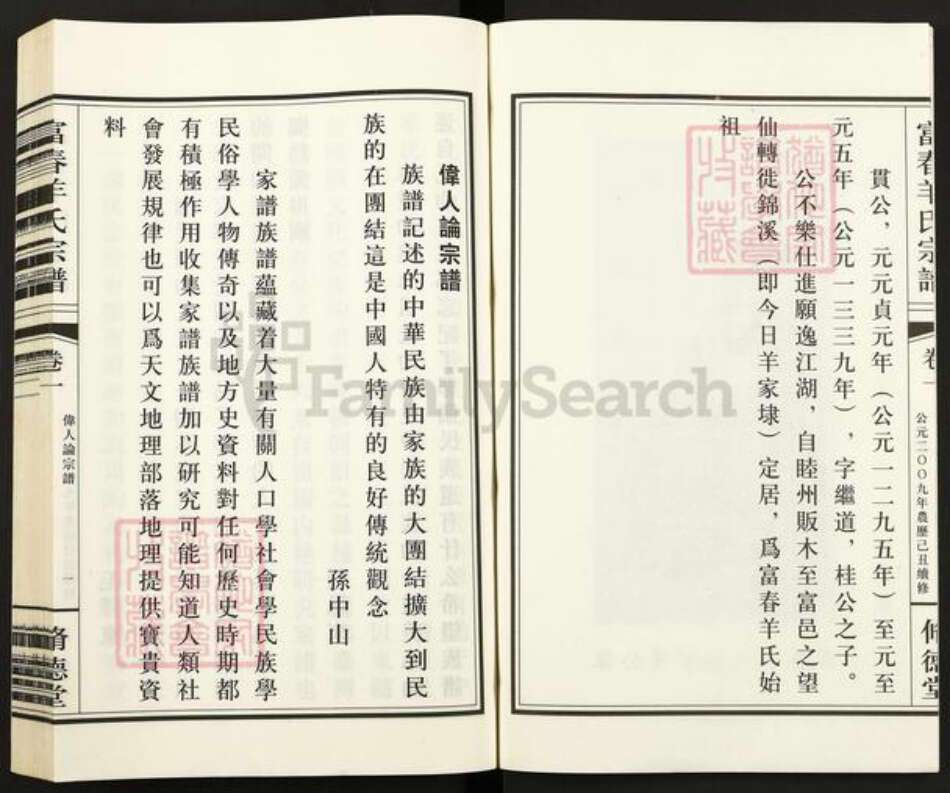 貫公，元元貞元年（公元一二九五年）至元至
元五年（公元一三三九年），字繼道，桂公之子。
公不樂仕進願逸江湖，自睦州販木至富邑之望
仙轉徙錦溪（即今日羊家埭）定居，爲富春羊氏始
祖
富春羊氏宗譜
卷一
公元二〇〇九年農歷己丑續修
脩德堂
偉人論宗譜
族譜記述的中華民族由家族的大團結擴大到民
族的在團結這是中國人特有的良好傳統觀念
孫中山
家譜族譜蘊藏着大量有關人口學社會學民族學
民俗學人物傳奇以及地方史資料對任何歷史時期都
有積極作用收集家譜族譜加以研究可能知道人類社
會發展規律也可以爲天文地理部落地理提供寶貴資
料
富春羊氏宗譜
卷一
偉人論宗譜
一
脩德堂
FamilySearch